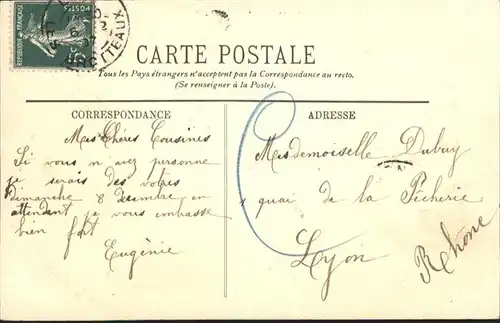 POSTES
REPUBLIQUE FRANÇAISE
LES BROTTEAUX
CARTE POSTALE
Tous les Pays étrangers n'acceptent pas la Correspondance au recto.
(Se renseigner à la Poste).
CORRESPONDANCE
Mes Chères Cousines
Si vous n'avez personne
je serais des votres
dimanche 8 decembre, en
attendant je vous embrasse
bien fort
Eugénie
ADRESSE
Mesdemoiselle Dubuy
1 quai de la Pêcherie
Lyon
Rhône